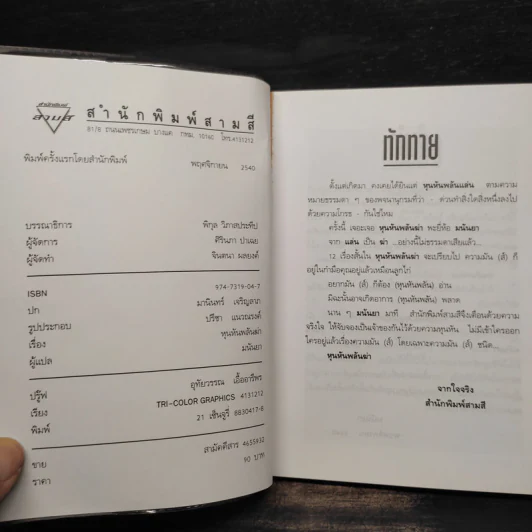 สำนักพิมพ์
สามสี
สำนักพิมพ์สามสี
81/8 ถนนเพชรเกษม บางแค กทม. 10160 โทร.4131212
พิมพ์ครั้งแรกโดยสำนักพิมพ์ พฤศจิกายน 2540
บรรณาธิการ พิกุล วิภาสประทีป
ผู้จัดการ ศิรินภา ปาเฉย
ผู้จัดทำ จินตนา ผลยงค์
ISBN 974-7319-04-7
ปก มานินทร์ เจริญลาภ
รูปประกอบ ปรีชา แนวณรงค์
เรื่อง หุนหันพลันฆ่า
ผู้แปล มนันยา
ปรู๊ฟ อุทัยวรรณ เอื้ออารีพร
เรียง TRI-COLOR GRAPHICS 4131212
พิมพ์ 21 เซ็นจูรี่ 8830417-8
ขาย สามัคคีสาร 4655932
ราคา 90 บาท
ทักทาย
ตั้งแต่เกิดมา คงเคยได้ยินแต่ หุนหันพลันแล่น ตามความ
หมายธรรมดา ๆ ของพจนานุกรมที่ว่า - ด่วนทำสิ่งใดสิ่งหนึ่งลงไป
ด้วยความโกรธ - กันใช่ไหม
ครั้งนี้ เจอะเจอ หุนหันพลันฆ่า พะยี่ห้อ มนันยา
จาก แล่น เป็น ฆ่า ...อย่างนี้ไม่ธรรมดาเสียแล้ว...
12 เรื่องสั้นใน หุนหันพลันฆ่า จะเปรียบไป ความมัน (ส์) ก็
อยู่ในกำมือคุณอยู่แล้วเหมือนลูกไก่
อยากมัน (ส์) ก็ต้อง (หุนหันพลัน) อ่าน
มิฉะนั้นอาจเกิดอาการ (หุนหันพลัน) พลาด
นาน ๆ มนันยา มาที สำนักพิมพ์สามสีจึงเตือนด้วยความ
จริงใจ ให้จับจองเป็นเจ้าของกันไว้ด้วยความหุนหัน ไม่มีเข้าใครออก
ใครอยู่แล้วเรื่องความมัน (ส์) โดยเฉพาะความมัน (ส์) ชนิด...
หุนหันพลันฆ่า
จากใจจริง
สำนักพิมพ์สามสี